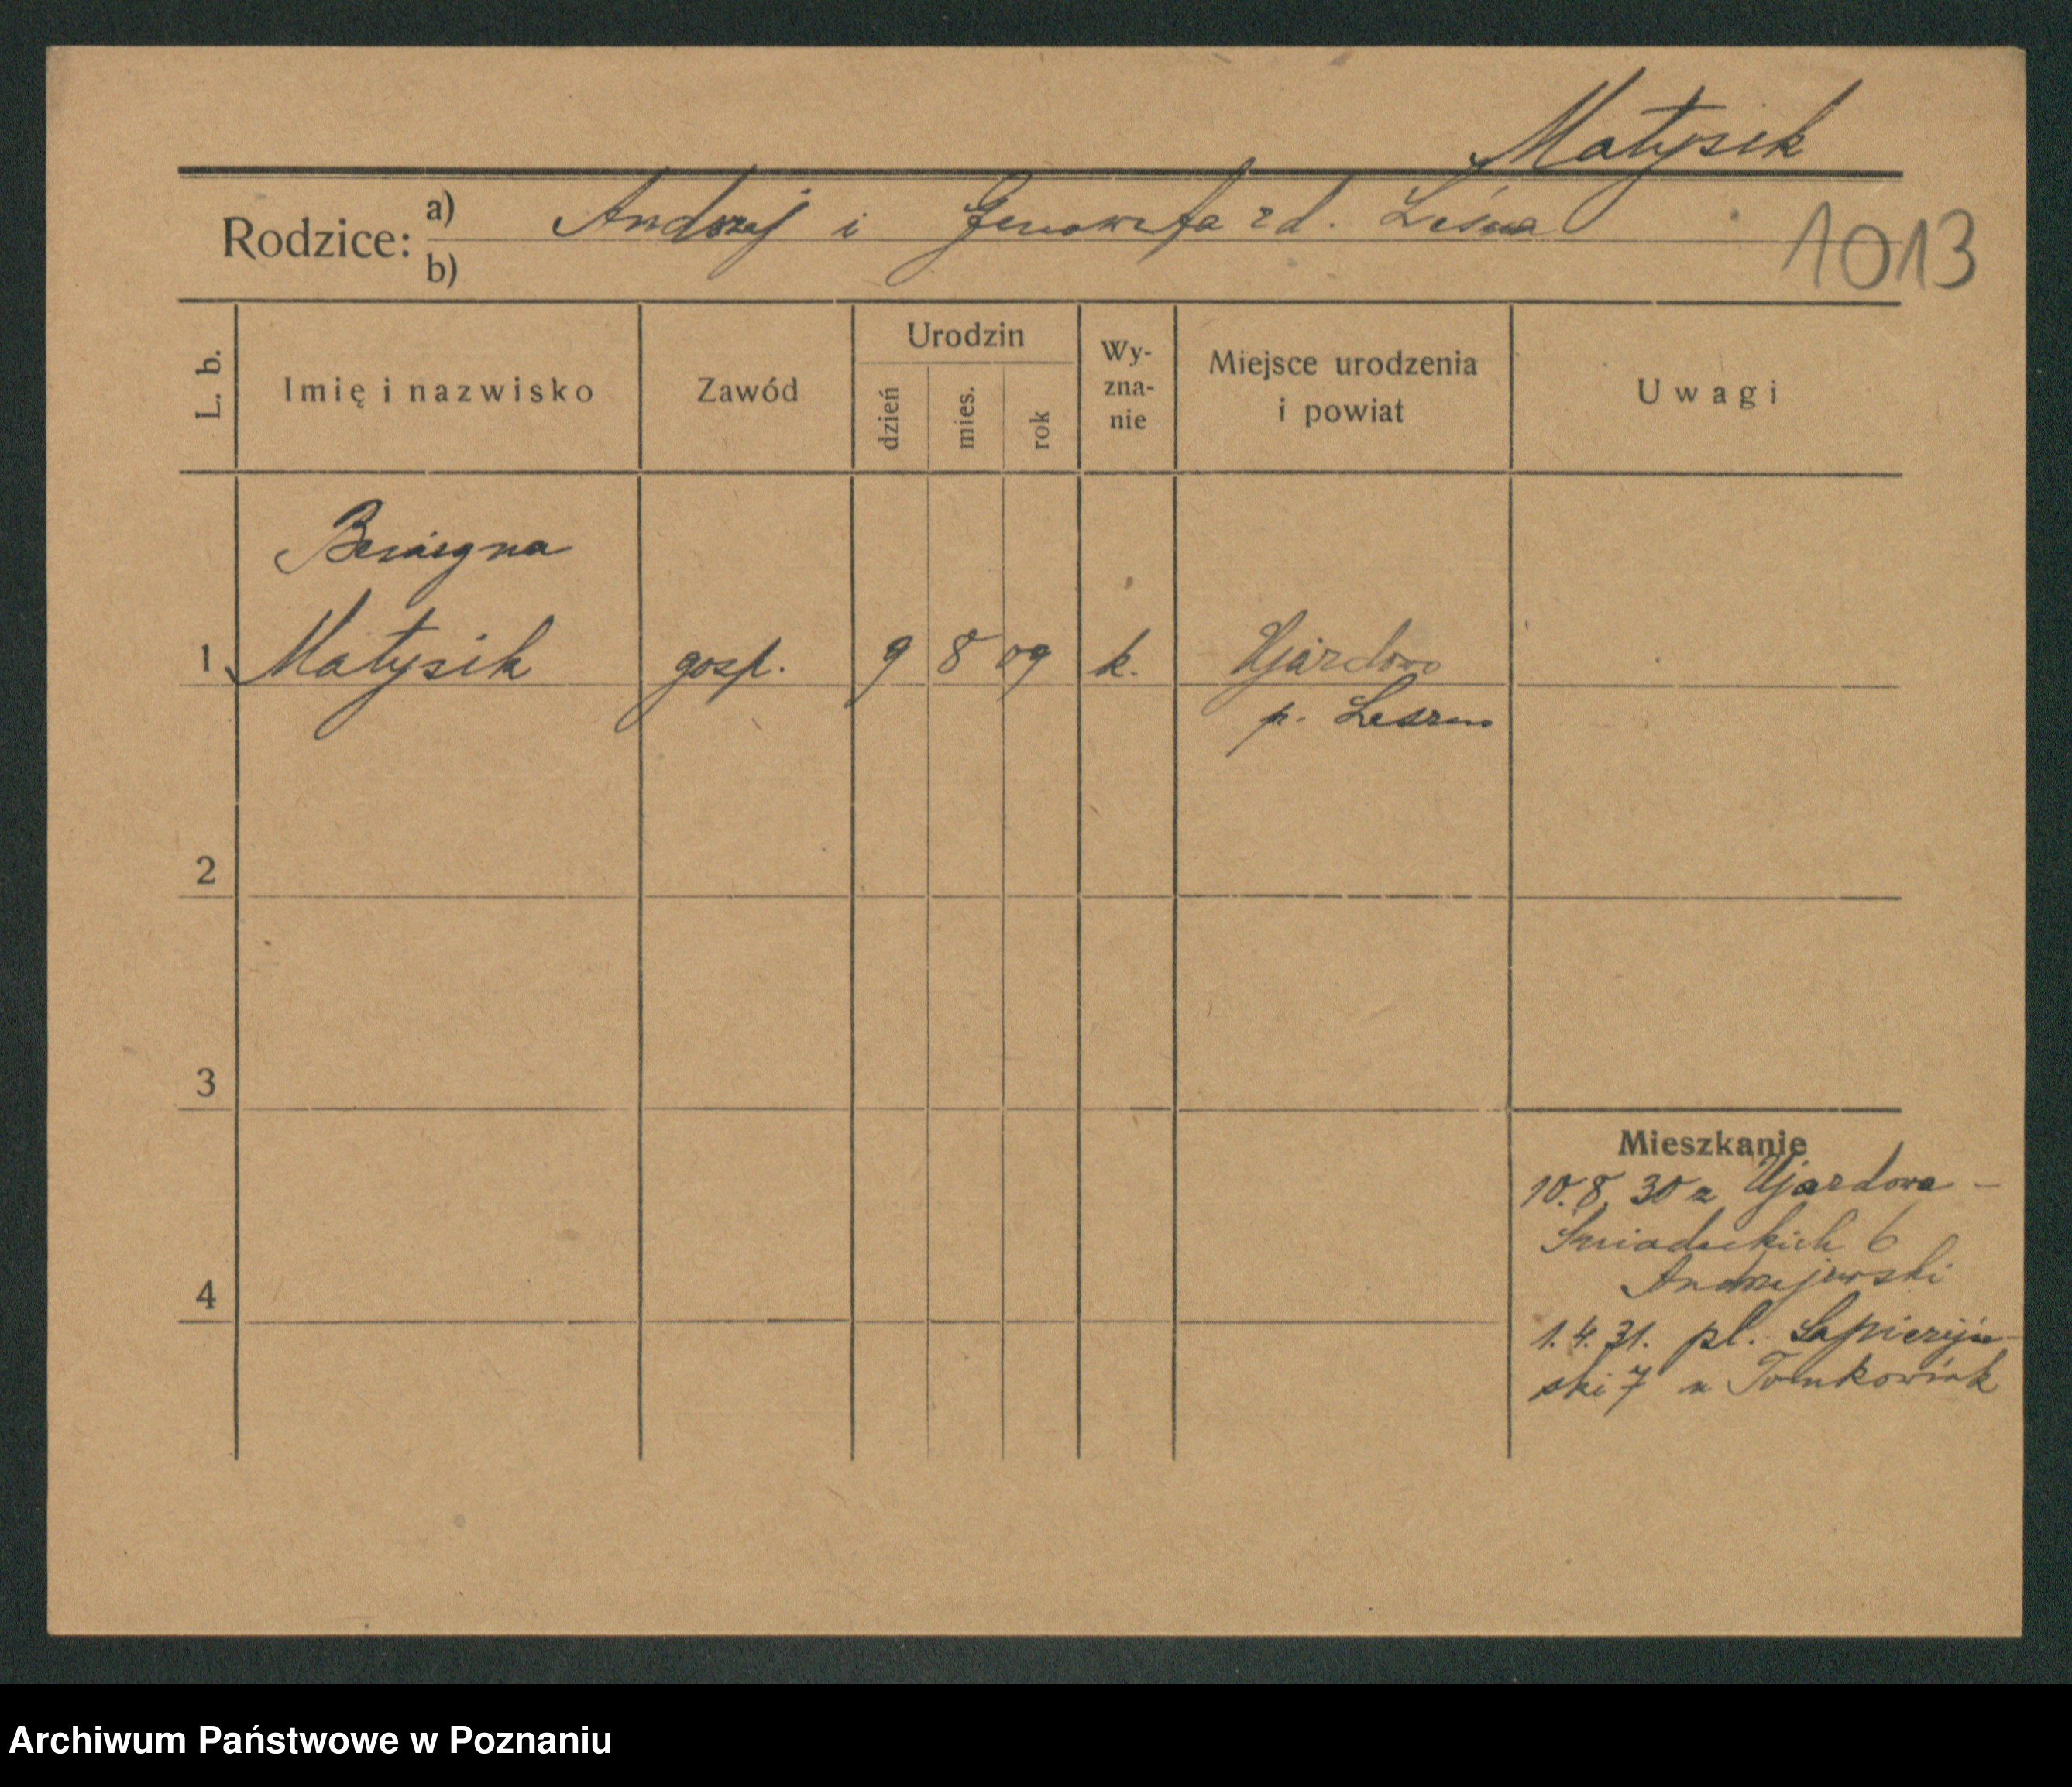 Matysik
Rodzice: a) Andrzej i Genowefa zd. Leśna
b)
1013
L. b.
Imię i nazwisko
Zawód
Urodzin
dzień
mies.
rok
Wy-
zna-
nie
Miejsce urodzenia
i powiat
Uwagi
Benigna
1 Matysik gosp. 9 8 09 k. Ujazdowo
p. Leszno
2
3
4
Mieszkanie
10.8.30 z Ujazdowa -
Śniadeckich 6
Andrzejewski
1.4.31. pl. Sapieżyń-
ski 7 u Tomkowiak
Archiwum Państwowe w Poznaniu